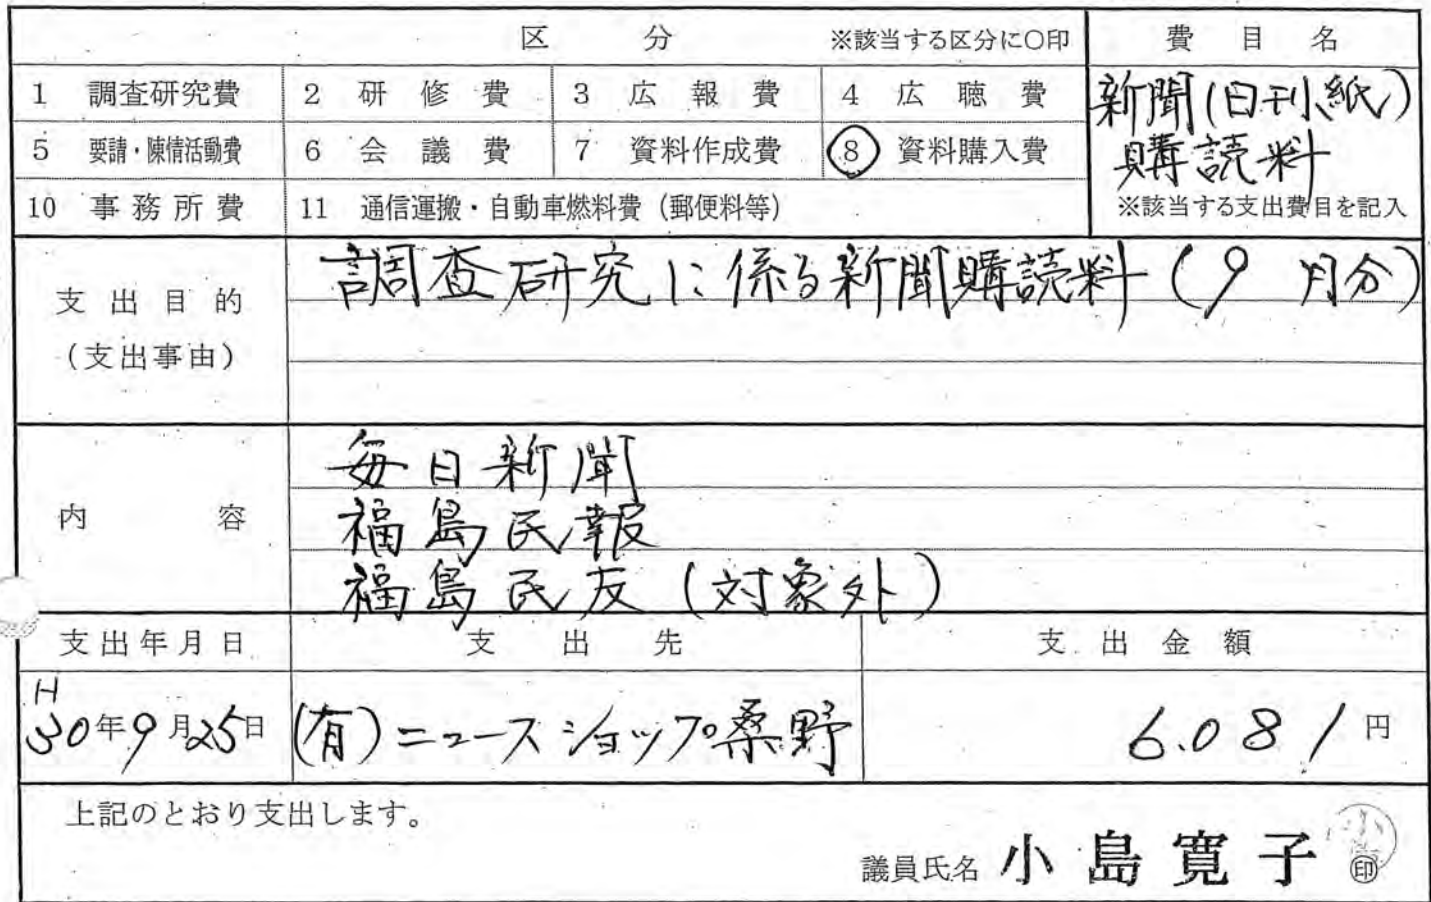 区 分 ※該当する区分に○印 費 目 名
1 調査研究費 2 研 修 費 3 広 報 費 4 広 聴 費
新聞(日刊紙)
5 要請・陳情活動費 6 会 議 費 7 資料作成費 8 資料購入費
購読料
10 事務所費 11 通信運搬・自動車燃料費(郵便料等)
※該当する支出費目を記入
支出目的
(支出事由)
調査研究に係る新聞購読料(9月分)
内 容
毎日新聞
福島民報
福島民友(対象外)
支出年月日 支 出 先 支 出 金 額
H30年9月25日 (有)ニュースショップ桑野 6.081円
上記のとおり支出します。
議員氏名 小島寛子 ㊞